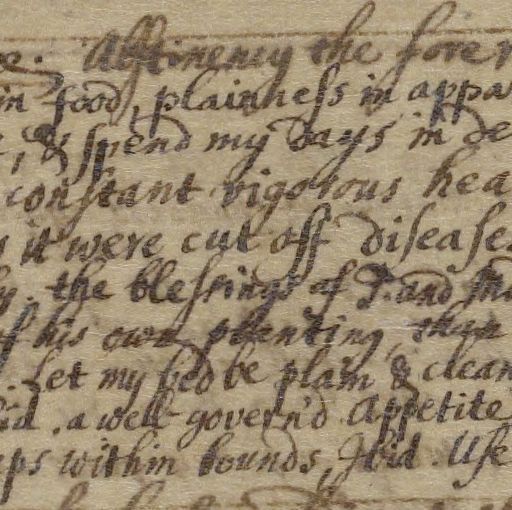 e. Abſtinency the fore
in food, plaineſs in appa
, & ſpend my Days in de
conſtant rigorous hea
it were cut off diſeaſe
the bleſsings of and
of his own planting, than
. Let my bed be plain & clean
id. a well govern'd Appetite
eps within bounds, Ibid. Uſe